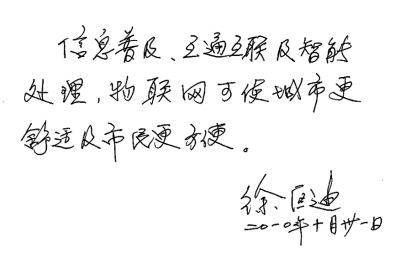 信息普及、互通互联及智能
处理，物联网可使城市更
舒适及市民更方便。
徐匡迪
二〇一〇年十月廿一日